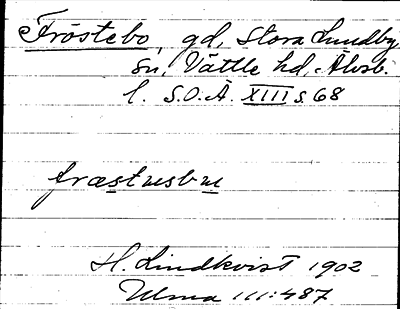 Fröstebo, gd, Stora Lundby
sn, Vättle hd, Älvsb.
l. S.O.Ä. XIII s. 68
H. Lindkvist 1902
Ulma 111:487